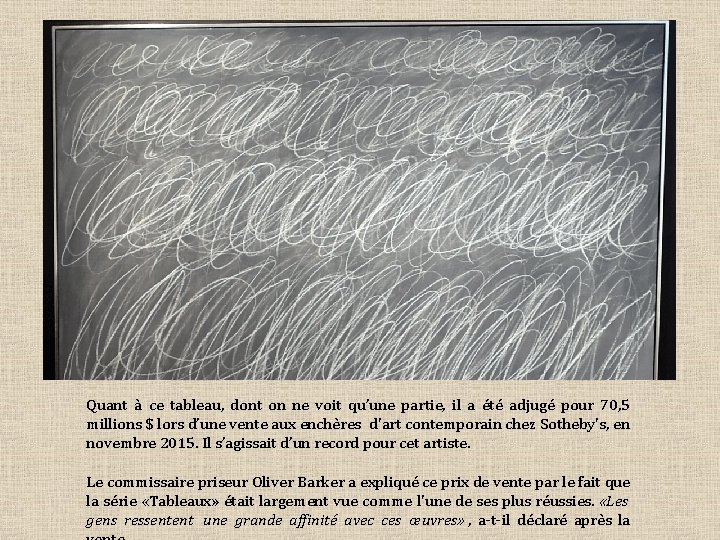 Quant à ce tableau, dont on ne voit qu’une partie, il a été adjugé pour 70,5
millions $ lors d’une vente aux enchères d'art contemporain chez Sotheby's, en
novembre 2015. Il s’agissait d’un record pour cet artiste.
Le commissaire priseur Oliver Barker a expliqué ce prix de vente par le fait que
la série «Tableaux» était largement vue comme l'une de ses plus réussies. «Les
gens ressentent une grande affinité avec ces œuvres» , a-t-il déclaré après la
vente